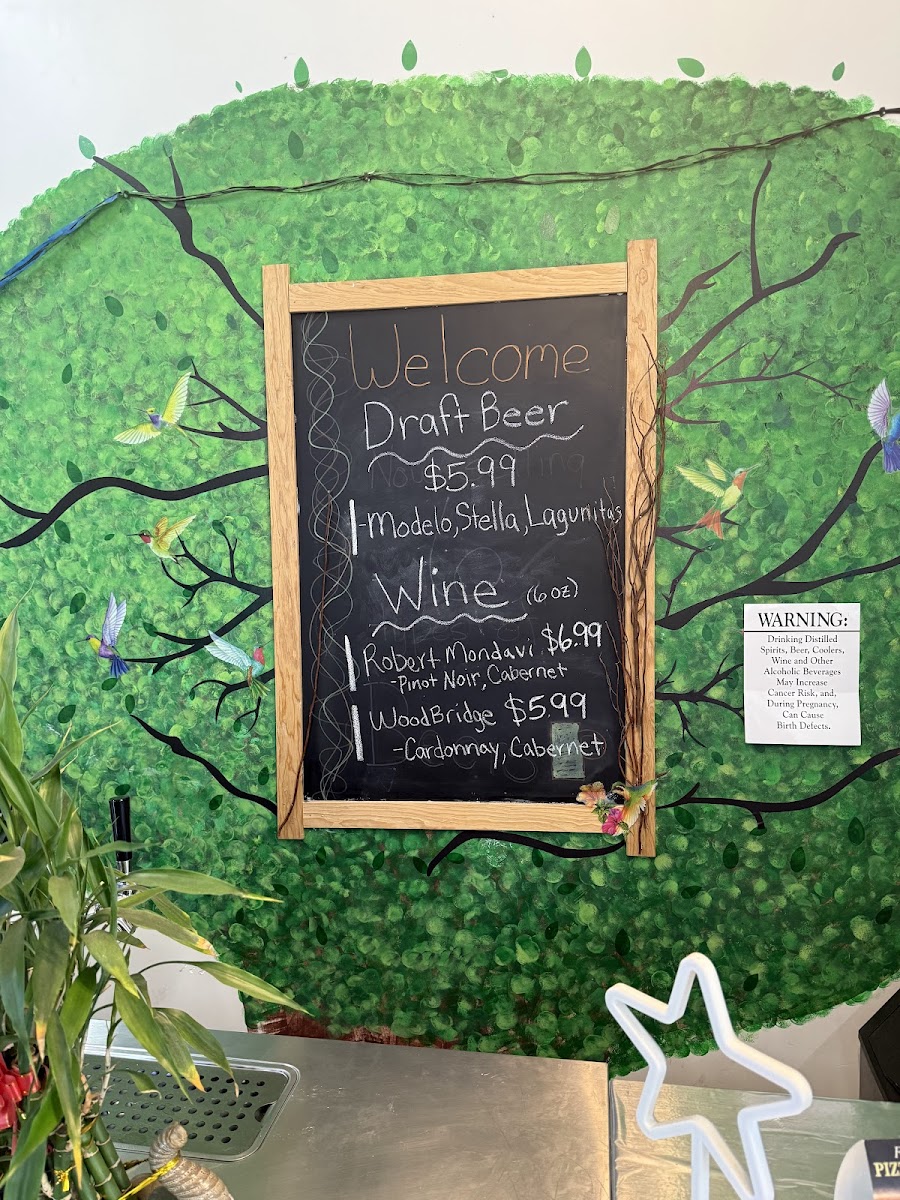 Welcome
Draft Beer
$5.99
-Modelo, Stella, Lagunitas
Wine (6 oz)
Robert Mondavi $6.99
-Pinot Noir, Cabernet
WoodBridge $5.99
-Cardonnay, Cabernet
WARNING:
Drinking Distilled
Spirits, Beer, Coolers,
Wine and Other
Alcoholic Beverages
May Increase
Cancer Risk, and,
During Pregnancy,
Can Cause
Birth Defects.